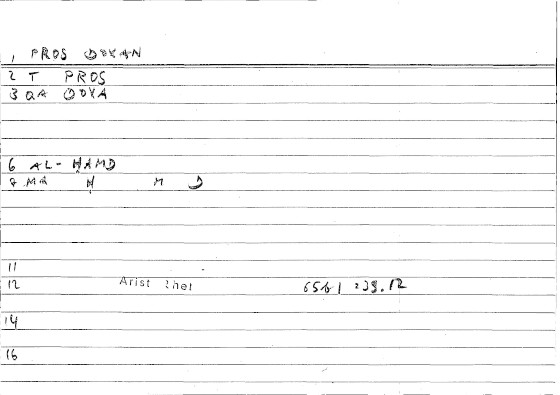 1 PROS ODYAN
2 T PROS
3 QA ODYA
6 AL-ḤAMD
8 MA Ḥ M D
11
12 Arist Rhet 6561 239.12
14
16